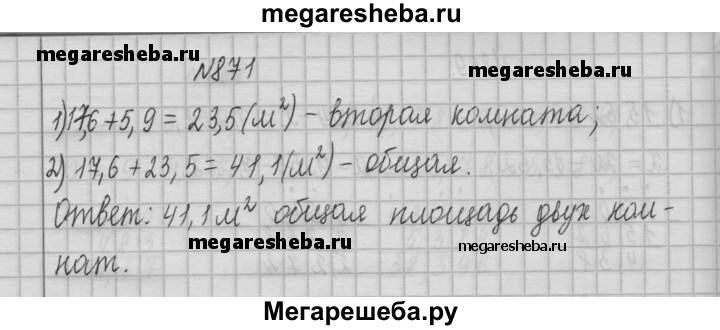 megaresheba.ru
megaresheba.ru
№871
1) 17,6 + 5,9 = 23,5 (м²) – вторая комната;
2) 17,6 + 23,5 = 41,1 (м²) – общая.
Ответ: 41,1 м² общая площадь двух ком-
megaresheba.ru
megaresheba.ru
нат.
Мегарешеба.ру